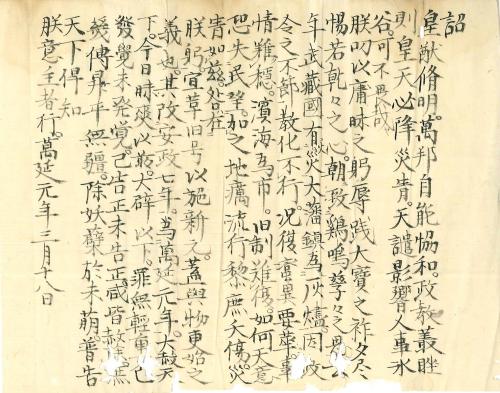 詔
皇猷脩明。萬邦自能協和。政教叢脞
則皇天必降災眚。天譴影響人事。水
谷可不畏哉。
朕叨以庸昧之躬辱践大寶之祚。夕
惕若乾々之心。朝政鶏鳴孳々
年武藏國有災。大藩鎮為灰燼。因政
令之不節。教化不行。况復
情難穏。濱海為市。旧制難復。如何天意
恐失民望。加之地癘流行。黎庶夭傷。災
眚如茲。咎在
朕躬。宜革旧号以施新元。蓋與物更始之
義也。其改安政七年。為萬延元年。大赦天
下。今日昧爽以前。大辟以下。罪無輕重。已
發覺未発覚。已告正未告正。咸皆赦
幾傳昇平無疆。除妖蘖於未萌。普告
天下俾知
朕意。主者行。萬延元年三月十八日